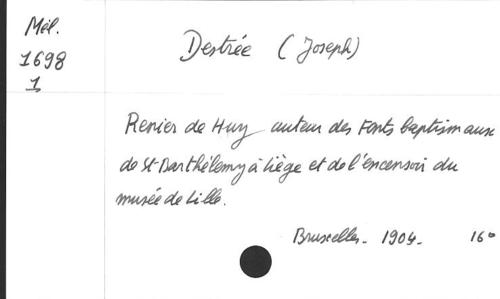 Mél.
1698
1
Destrée (Joseph)
Renier de Huy auteur des Fonts baptismaux
de St Barthélemy à Liège et de l'encensoir du
musée de Lille.
Bruxelles. 1904. 16°